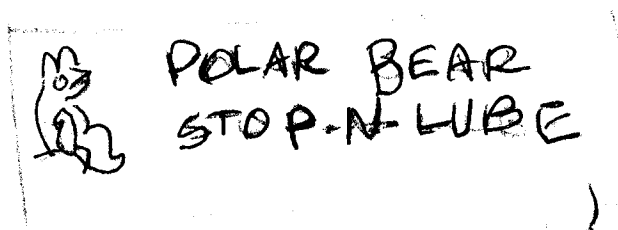 POLAR BEAR
STOP-N-LUBE